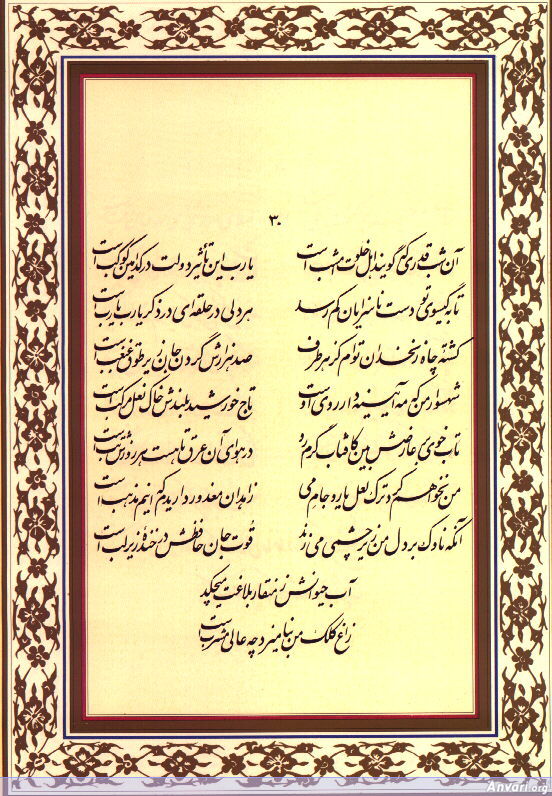 ۳۰
آن شب قدری که گویند اهل خلوت امشب است یارب این تأثیر دولت در کدامین کوکب است
تا به گیسوی تو دست ناسزایان کم رسد هر دلی در حلقه‌ای در ذکر یارب یارب است
کشتهٔ چاه زنخدان توام کز هر طرف صد هزارش گردن جان زیر طوق غبغب است
شهسوار من که مه آیینه دار روی اوست تاج خورشید بلندش خاک نعل مرکب است
تاب خوی بر عارضش بین کافتاب گرم رو در هوای آن عرق تا هست هر روزش تب است
من نخواهم کرد ترک لعل یار و جام می زاهدان معذور داریدم که اینم مذهب است
آنکه ناوک بر دل من زیر چشمی می زند قوت جان حافظش در خندهٔ زیر لب است
آب حیوانش ز منقار بلاغت میچکد
زاغ کلک من بنامیزد چه عالی مشرب است
Anvari.org